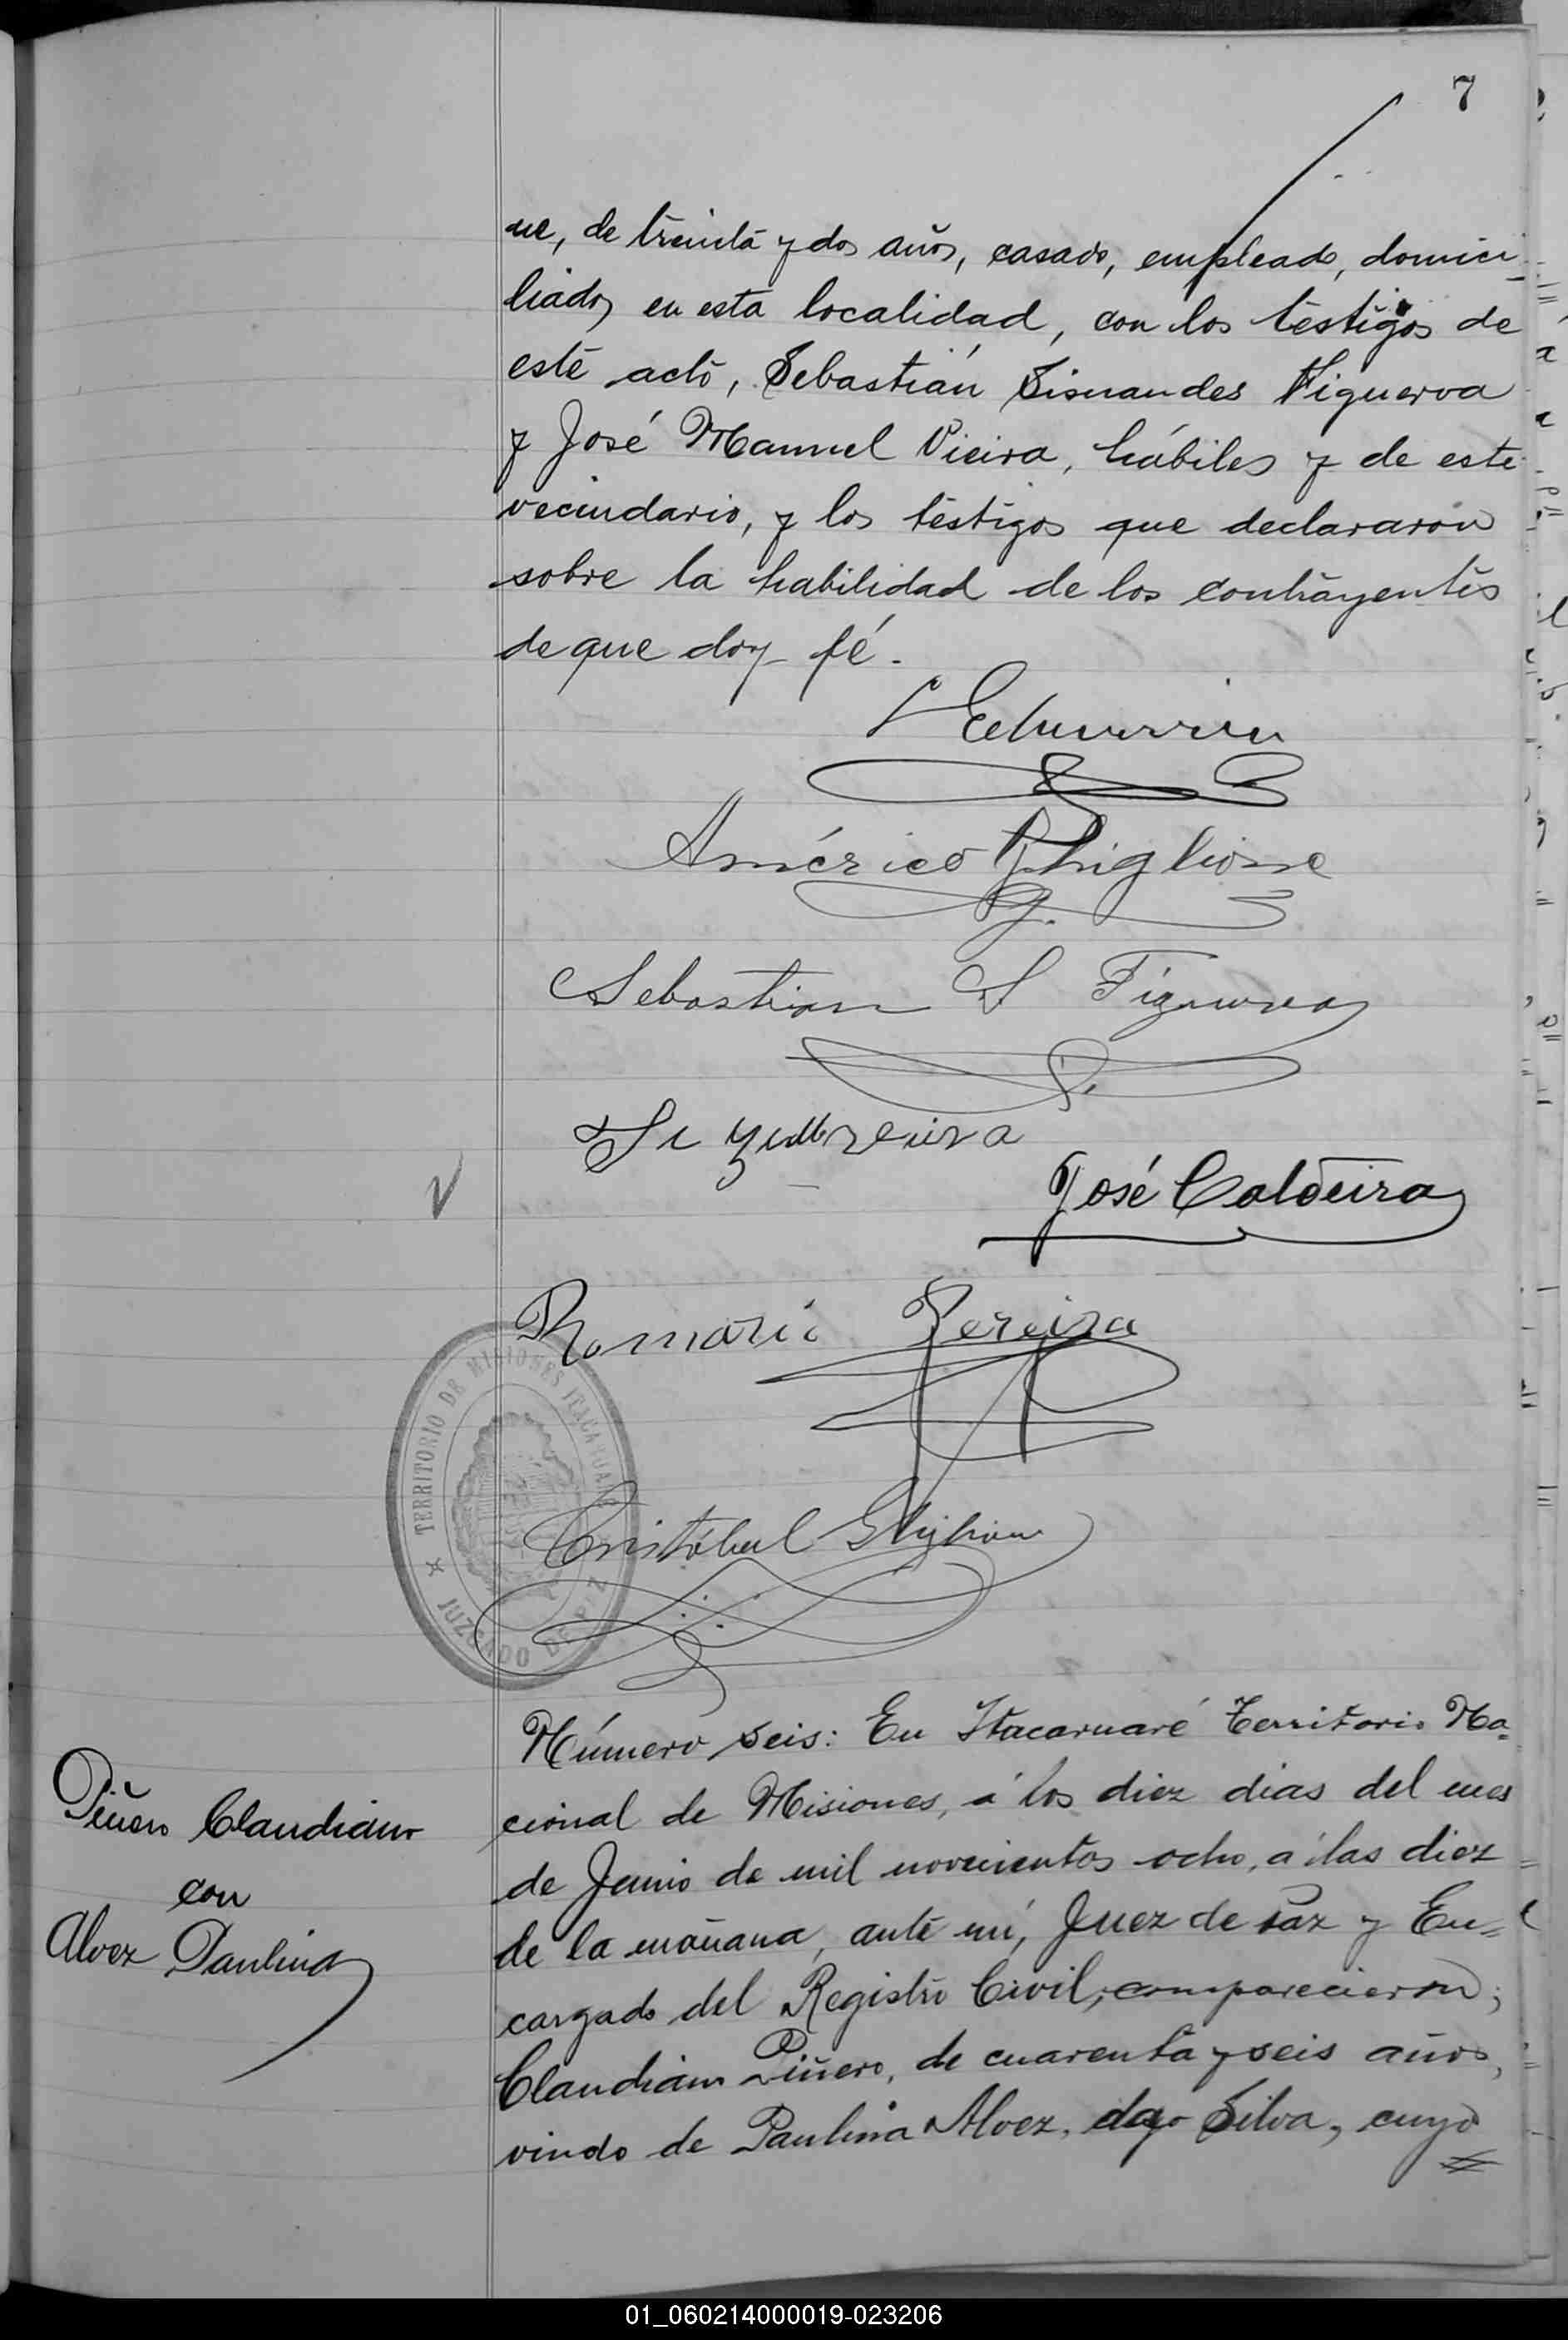 7
ne, de treinta y dos años, casado, empleado, domici-
liados en esta localidad, con los testigos de
este acto, Sebastián Sisnandes Figueroa
y José Manuel Vieira, hábiles y de este
vecindario, y los testigos que declararon
sobre la habilidad de los contrayentes
de que doy fé.
Echeverria
Américo Ghiglione
Sebastian S Figueroa
José Caldeira
Romario Pereira
TERRITORIO DE MISIONES ITACARUARE
JUZGADO DE PAZ
Cristóbal Ghiglione
Piñero Claudiano
con
Alvez Paulina
Número seis: En Itacaruaré Territorio Na-
cional de Misiones, á los diez dias del mes
de Junio de mil novecientos ocho, á las diez
de la mañana, ante mí, Juez de Paz y En-
cargado del Registro Civil, comparecieron;
Claudiano Piñero, de cuarenta y seis años,
viudo de Paulina Alvez, Silva, cuyo
01_060214000019-023206